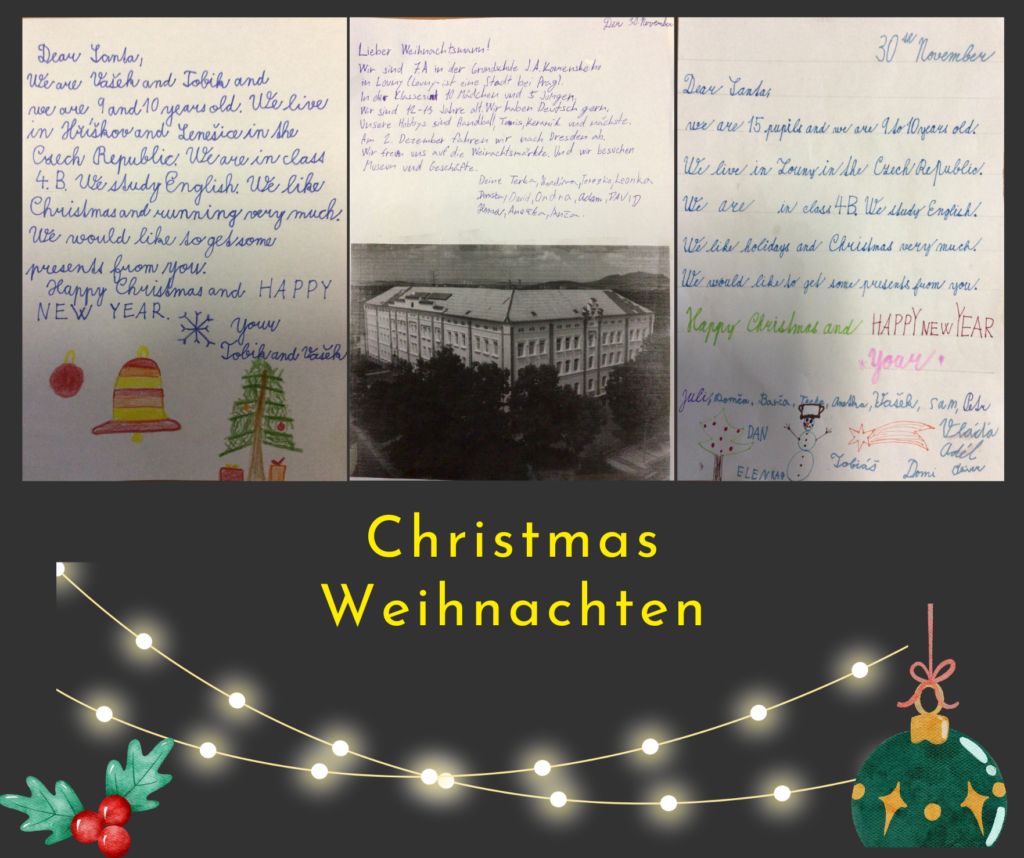 Dear Santa,
We are Vašek and Tobík and
we are 9 and 10 years old. We live
in Hříškov and Lenešice in the
Czech Republic. We are in class
4. B. We study English. We like
Christmas and running very much.
We would like to get some
presents from you.
Happy Christmas and HAPPY
NEW YEAR.
Your
Tobík and Vašek
Den 30 November
Lieber Weihnachtsmann!
Wir sind 7A in der Grundschule J.A. Komenského
in Louny (Louny ist eine Stadt bei Prag).
In der Klasse sind 10 Mädchen und 5 Jungen.
Wir sind 12-13 Jahre alt. Wir haben Deutsch gern.
Unsere Hobbys sind Handball, Tennis, Keramik und
Am 2. Dezember fahren wir nach Dresden ab.
Wir freuen uns auf die Weinachtsmärkte. Und wir besuchen
Museum und Geschäfte.
Deine Terka, Leonka
David, Ondra, Adam, DAVID
Honza, Anežka,
30st November
Dear Santa,
we are 15 pupils and we are 9 to 10 years old.
We live in Louny in the Czech Republic.
We are in class 4.B. We study English.
We like holidays and Christmas very much.
We would like to get some presents from you.
Happy Christmas and HAPPY NEW YEAR
Your
Juli, Domča, Barča, Anežka, Vašek, Sam, Petr
DAN
Vláďa
Adél
Tobiáš
Domi
Christmas
Weihnachten